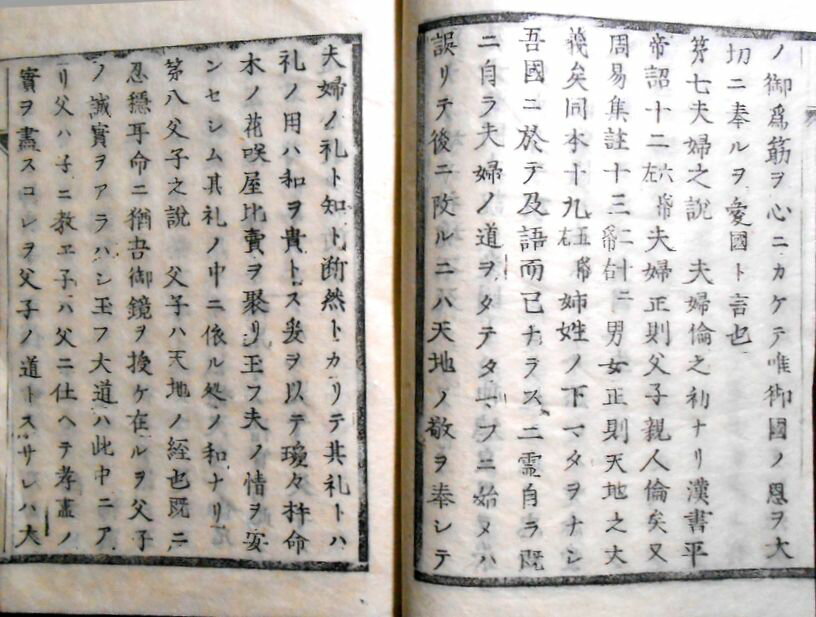 ノ御爲筋ヲ心ニカケテ唯御國ノ恩ヲ大
切ニ奉ルヲ愛國ト言也
第七夫婦之説　夫婦倫之初ナリ漢書平
帝詔十二六帋左夫婦正則父子親人倫矣又
周易集註十三二十二帋右男女正則天地之大
義矣同本十九五帋右姉姓ノ下マタヲナシ
吾國ニ於テ及語而已ナラス二霊自ラ既
ニ自ラ夫婦ノ道ヲタテタ フニ始メハ
誤リテ後ニ改ルニハ天地ノ敬ヲ奉シテ
夫婦ノ礼ト知ト断然トカリテ其礼トハ
礼ノ用ハ和ヲ貴トス爰ヲ以テ瓊々杵命
木ノ花咲屋比賣ヲ聚リ玉フ夫ノ情ヲ安
ンセシム其礼ノ中ニ依ル処ノ和ナリ
第八父子之説　父子ハ天地ノ経也既ニ
忍穂耳命ニ猶吾御鏡ヲ授ケ在ルヲ父子
ノ誠實ヲアラハシ玉フ大道ハ此中ニア
リ父ハ子ニ教エ子ハ父ニ仕ヘテ孝盡ノ
實ヲ盡スコレヲ父子ノ道トスサレハ大